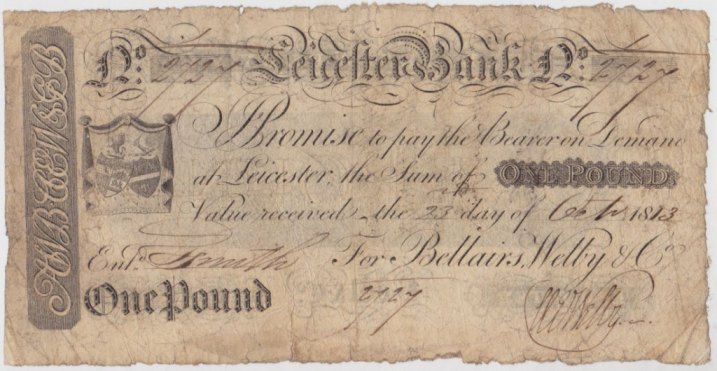 No. 2727 Leicester Bank No. 2727
I Promise to pay the Bearer on Demand
at Leicester, the Sum of ONE POUND
Value received the 23 day of Octbr 1813
Entd. Smith For Bellairs, Welby & Co.
One Pound 2727